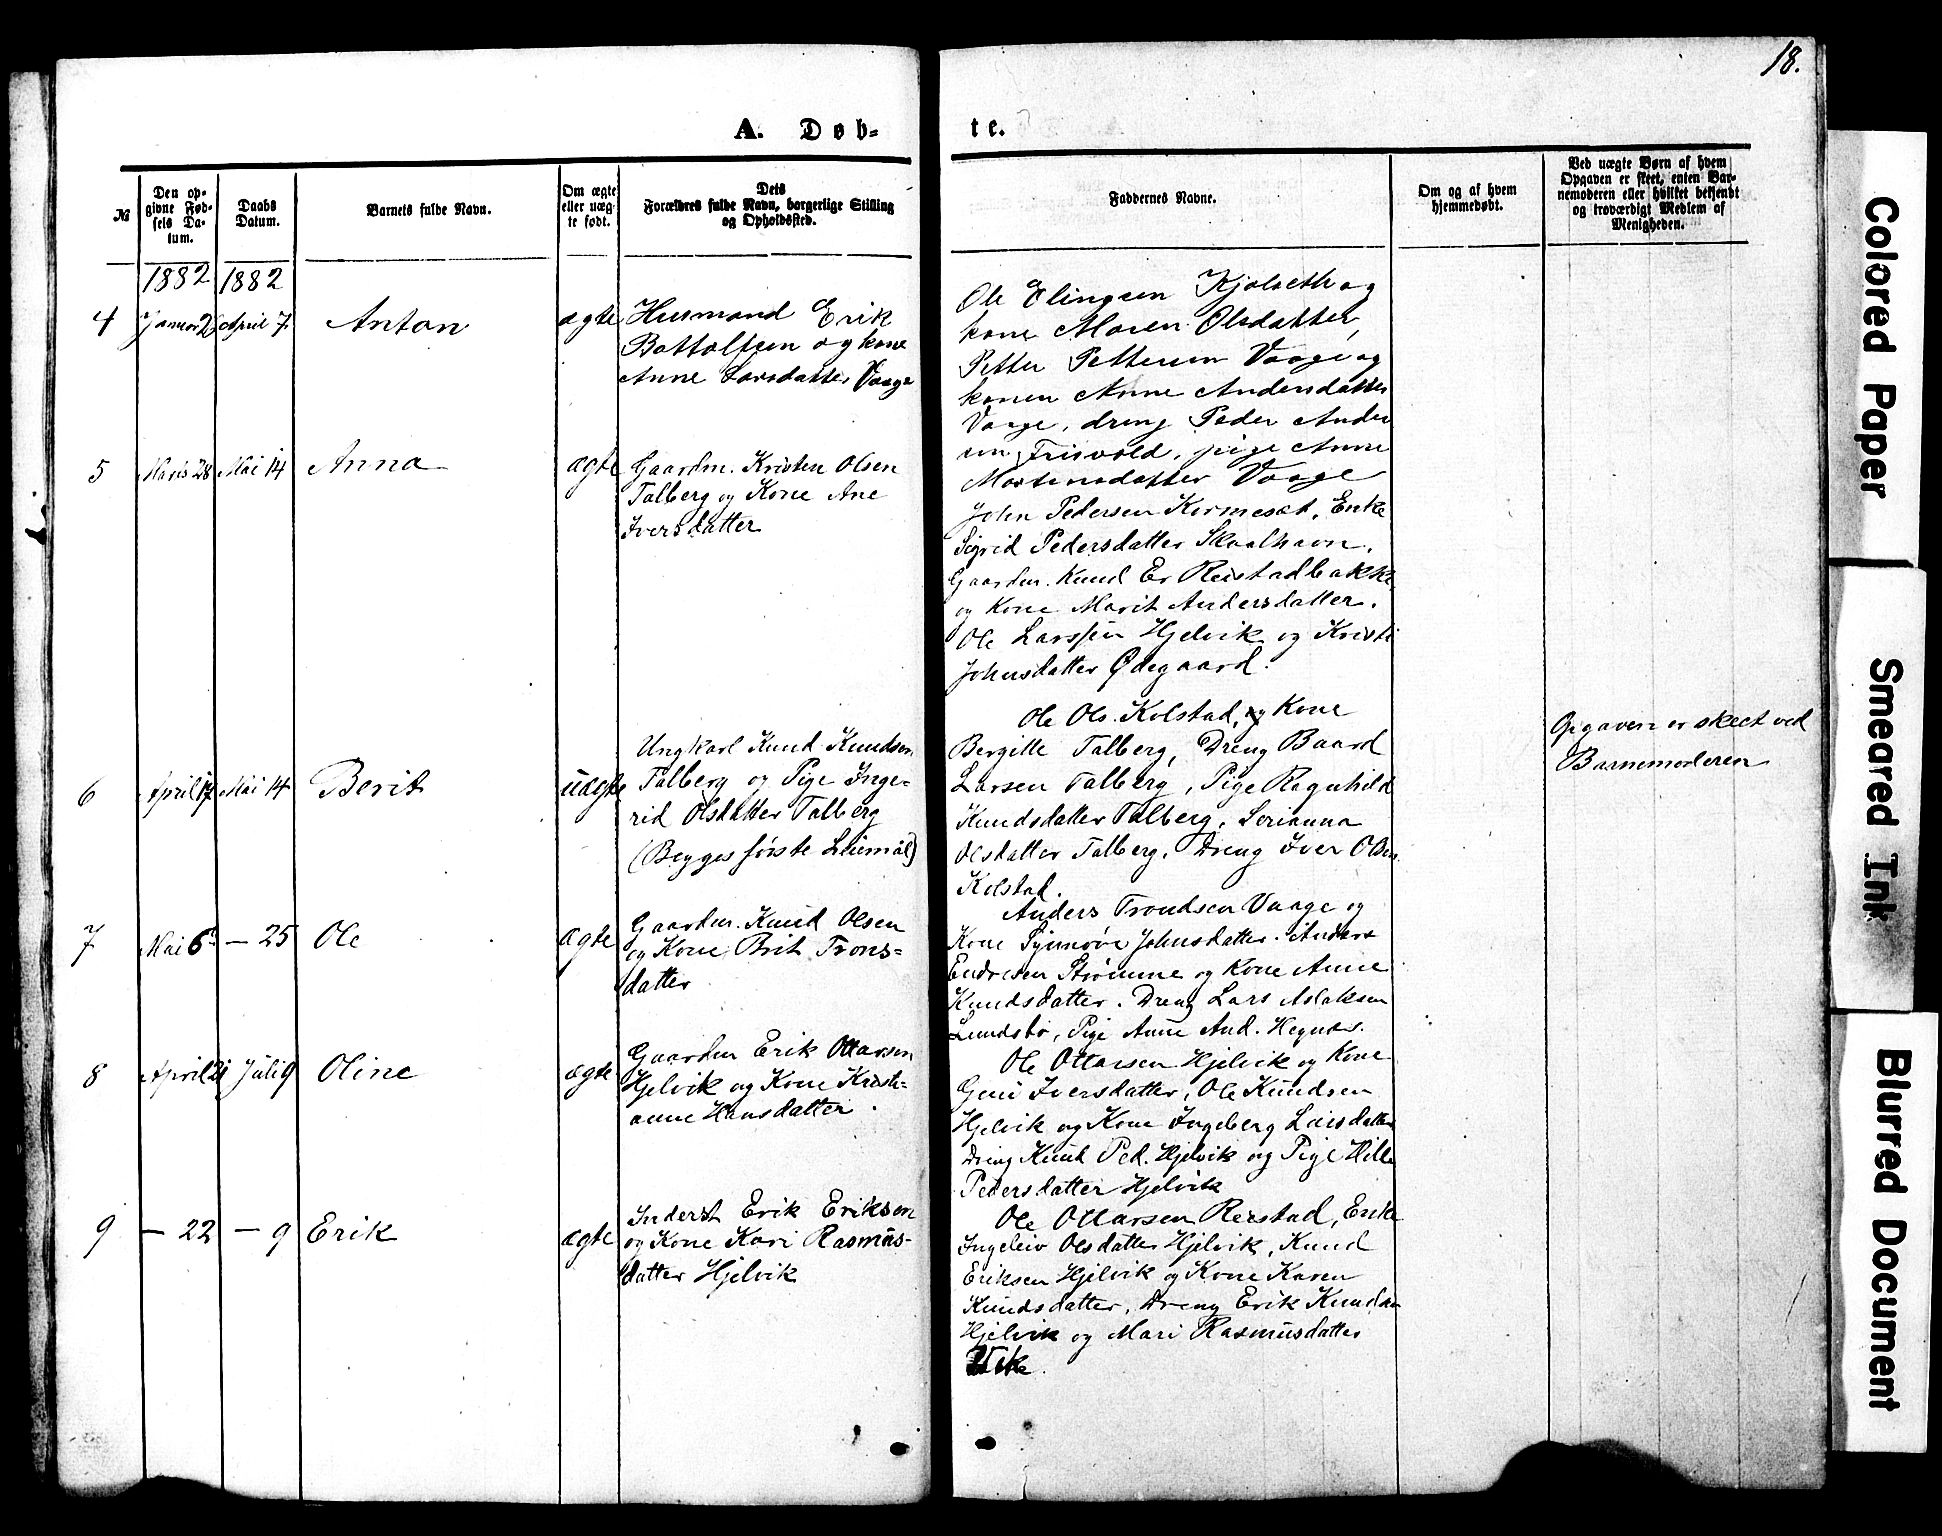 18.
A. Døb-
te.
№
Den op-
givne Fød-
sels Da-
tum.
Daabs
Datum.
Barnets fulde Navn.
Om ægte
eller uæg-
te født.
Dets
Forældres fulde Navn, borgerlige Stilling
og Opholdssted.
Faddernes Navne.
Om og af hvem
hjemmedøbt.
Ved uægte Børn af hvem
Opgaven er skeet, enten Bar-
nemoderen eller hvilket bekjendt
og troværdigt Medlem af
Menigheden.
1882 1882
4 April 7. Anton ægte
Husmand Erik
Bottolfsen og kone
Anne Larsdatter Vaage
Ole Elingsen Kjolseth og
kone Maren Olsdatter,
Petter Pettersen Vaage og
konen Anne Andersdatter
Vaage, dreng Peder Ander
sen Frisvold, pige Anne
Mortensdatter Vaage
5 Marts 28 Mai 14 Anna ægte
Gaardm. Kristen Olsen
Talberg og Kone Ane
Iversdatter
John Pedersen Kormeset, Enke
Sigrid Pedersdatter Skaalhavn.
Gaardm. Knud Er Reistadbakke
og Kone Marit Andersdatter.
Ole Larssen Hjelvik og Kristi
Johnsdatter Ødegaard.
6 April 17 Mai 14 Berit uægte
Ungkarl Knud Knudsen
Talberg og Pige Inge-
rid Olsdatter Talberg
(Begges første Leiemål)
Ole Ols. Kolstad, og Kone
Bergitte Talberg, Dreng Baard
Larsen Talberg, Pige Ragnhild
Knudsdatter Talberg, Serianna
Olsdatter Talberg, Dreng Iver Olsen
Kolstad.
Opgaven er skeet ved
Barnemoderen
7 Mai 6 – 25 Ole ægte
Gaardm. Knud Olsen
og Kone Brit Trons-
datter
Anders Trondsen Vaage og
Kone Synnøve Johnsdatter. Anders
Endresen Strømme og Kone Anne
Knudsdatter. Dreng Lars Aslaksen
Lundsbø, Pige Anne And. Hegnæs.
8 April 21 Juli 9 Oline ægte
Gaardm Erik Ottarsen
Hjelvik og Kone Kristi-
anne Hansdatter.
Ole Ottarsen Hjelvik og Kone
Guri Iversdatter, Ole Knudsen
Hjelvik og Kone Ingeberg Larsdatter
Dreng Knud Ped. Hjelvik og Pige
Pedersdatter Hjelvik
9 – 22 – 9 Erik ægte
Inderst Erik Eriksen
og Kone Kari Rasmus-
datter Hjelvik
Ole Ottarsen Reistad, Enke
Ingeleiv Olsdatter Hjelvik, Knud
Eriksen Hjelvik og Kone Karen
Knudsdatter, Dreng Erik Knudsen
Hjelvik og Mari Rasmusdatter
Vik.
Colored Paper
Smeared Ink
Blurred Document